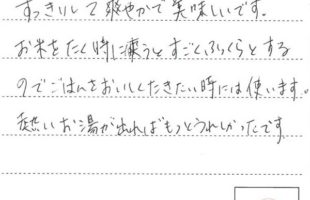 すっきりして爽やかで美味しいです。
お米をたく時に使うとすごくふっくらとする
のでごはんをおいしくたきたい時には使います。
熱いお湯が出ればもっとうれしかったです